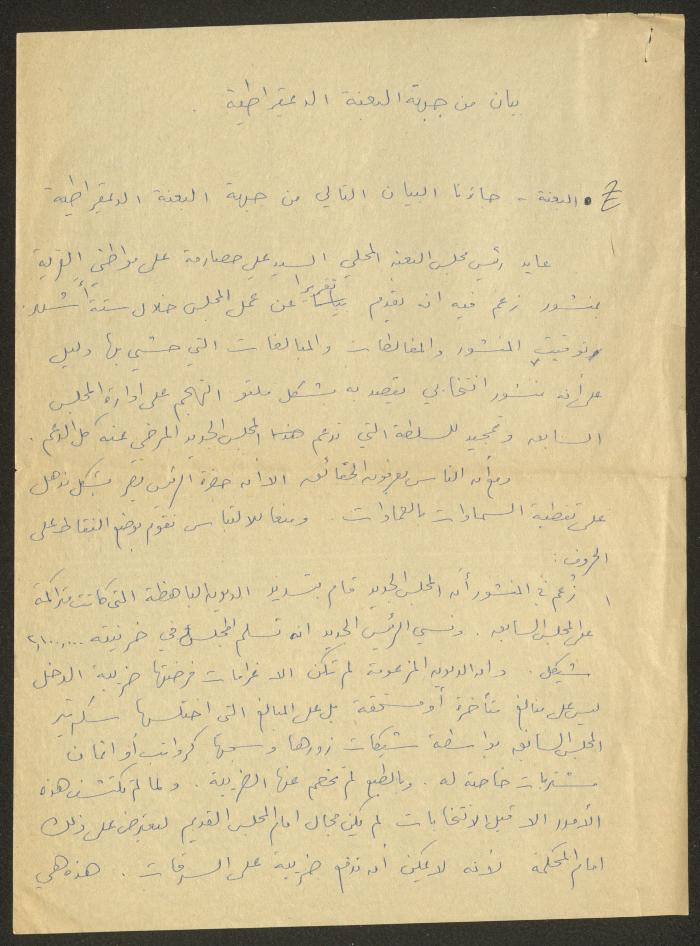 بيان من جبهة البعنة الديمقراطية .
البعنة - جاءنا البيان التالي من جبهة البعنة الديمقراطية
عايد رئيس مجلس البعنة المحلي السيد علي حصارمة على مواطني القرية
بمنشور زعم فيه انه يقدم تقريرا عن عمل المجلس خلال ستة أشهر .
توقيت المنشور والمغالطات والمبالغات التي حشي بها دليل
على أنه منشور انتخابي يقصد به بشكل ملتو التهجم على ادارة المجلس
السابق وتمجيد للسلطة التي تدعم المجلس الجديد المرضي عنه كل الدعم .
ومع أن الناس يعرفون الحقائق الا أن حضرة الرئيس يصر بشكل مذهل
على تغطية السماوات بالعماوات . ومنعا للالتباس نقوم بوضع النقاط على
الحروف :
١ زعم في المنشور أن المجلس الجديد قام بتسديد الديون الباهظة التي كانت متراكمة
على المجلس السابق . ونسي الرئيس الجديد انه تسلم المجلس في خزينته
شيكل . وان الديون المزعومة لم تكن الا غرامات فرضتها ضريبة الدخل
ليس على مبالغ متأخرة أو مستحقة بل على المبالغ التي اختلسها سكرتير
المجلس السابق بواسطة شيكات زورها وسحبها كرواتب أو اثمان
مشتريات خاصة له . وبالطبع لم تخصم عنها الضريبة . ولما لم تكتشف هذه
الأمور الا قبل الانتخابات لم يكن مجال امام المجلس القديم ليعترض على ذلك
امام المحكمة لأنه لا يمكن أن تدفع ضريبة على السرقات . هذه هي